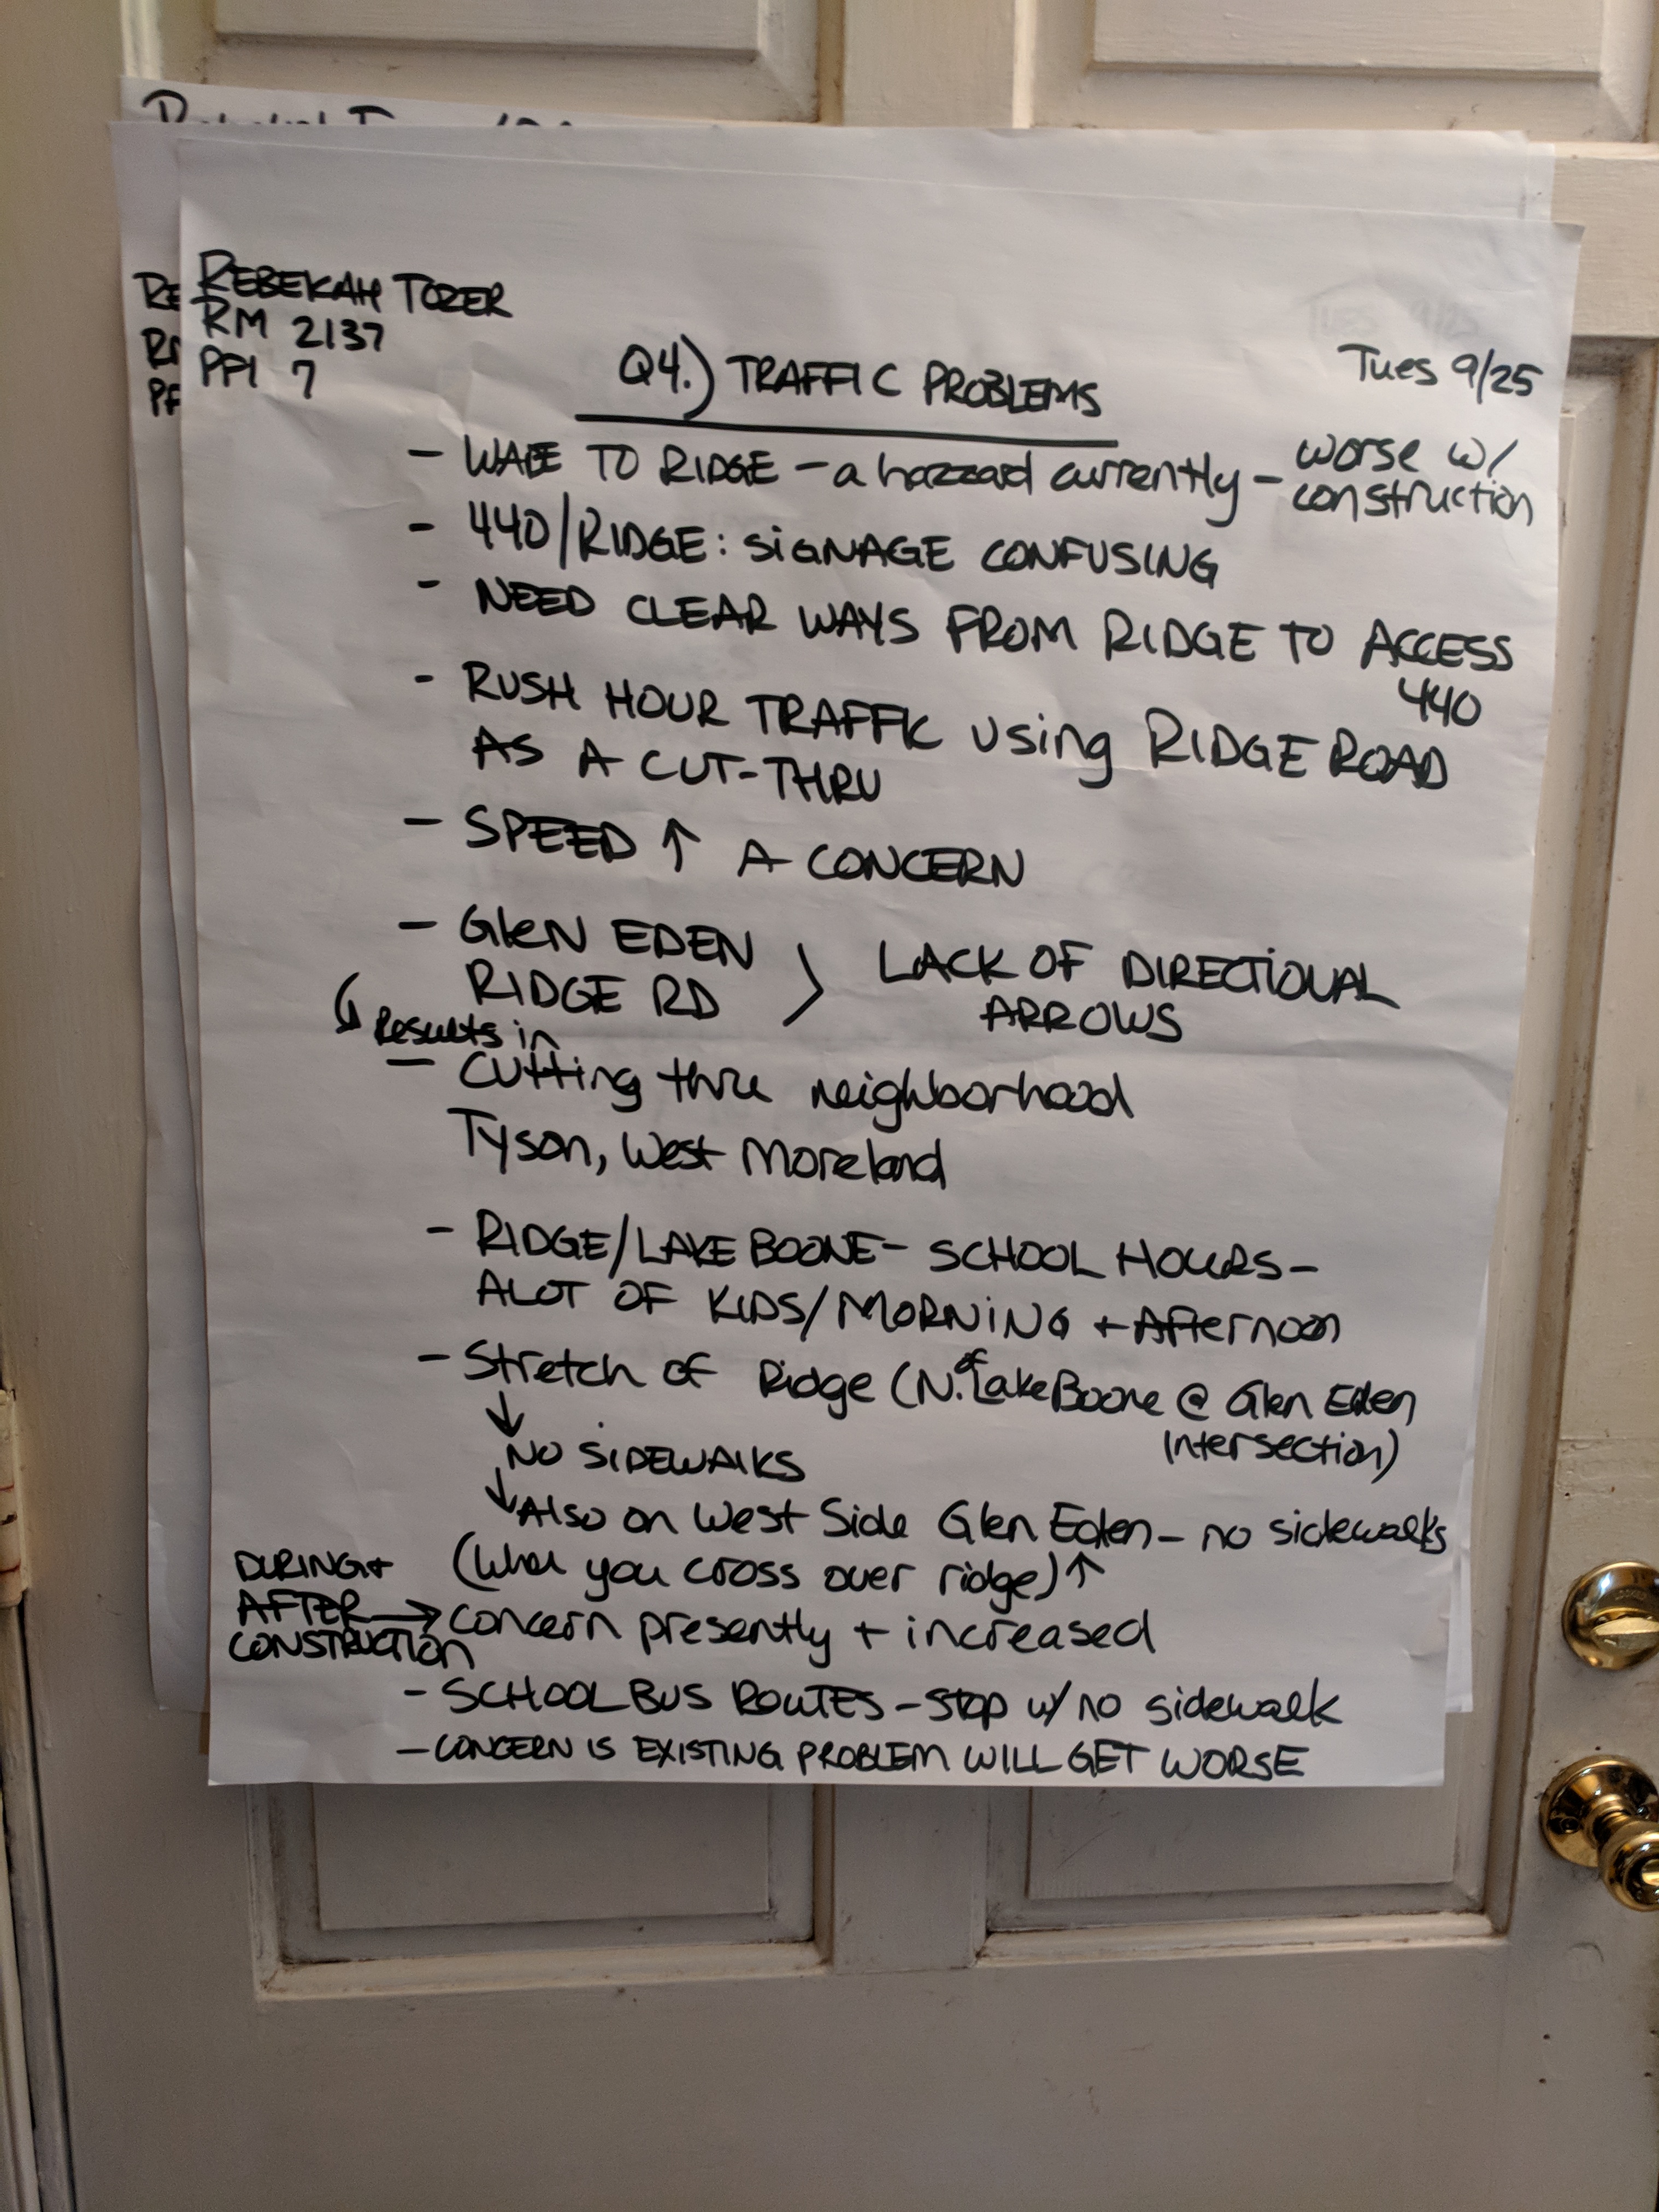 REBEKAH TOZER
RM 2137
PFI 7
Tues 9/25
Q4.) TRAFFIC PROBLEMS
- WADE TO RIDGE - a hazzad currently - worse w/
construction
- 440/RIDGE: SIGNAGE CONFUSING
- NEED CLEAR WAYS FROM RIDGE TO ACCESS
440
- RUSH HOUR TRAFFIC using RIDGE ROAD
AS A CUT-THRU
- SPEED ↑ A CONCERN
- GleN EDEN
RIDGE RD > LACK OF DIRECTIONAL
ARROWS
Results in
- Cutting thru neighborhood
Tyson, West Moreland
- RIDGE/LAKE BOONE- SCHOOL HOURS-
ALOT OF KIDS/MORNING + Afternoon
- Stretch of Ridge (N. of Lake Boone @ Glen Eden
Intersection)
↓ NO SIDEWALKS
↓ Also on West Side Glen Eden - no sidewalks
(when you cross over ridge) ↑
DURING +
AFTER → concern presently + increased
CONSTRUCTION
- SCHOOL BUS ROUTES - Stop w/ no sidewalk
- CONCERN IS EXISTING PROBLEM WILL GET WORSE